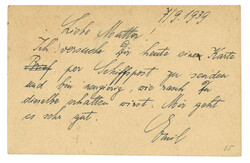 7/9.1939
Liebe Mutter!
Ich versuche Dir heute eine Karte
Brief per Schiffspost zu senden
und bin neugierig, wie rasch Du
dieselbe erhalten wirst. Mir geht
es sehr gut.
Emil